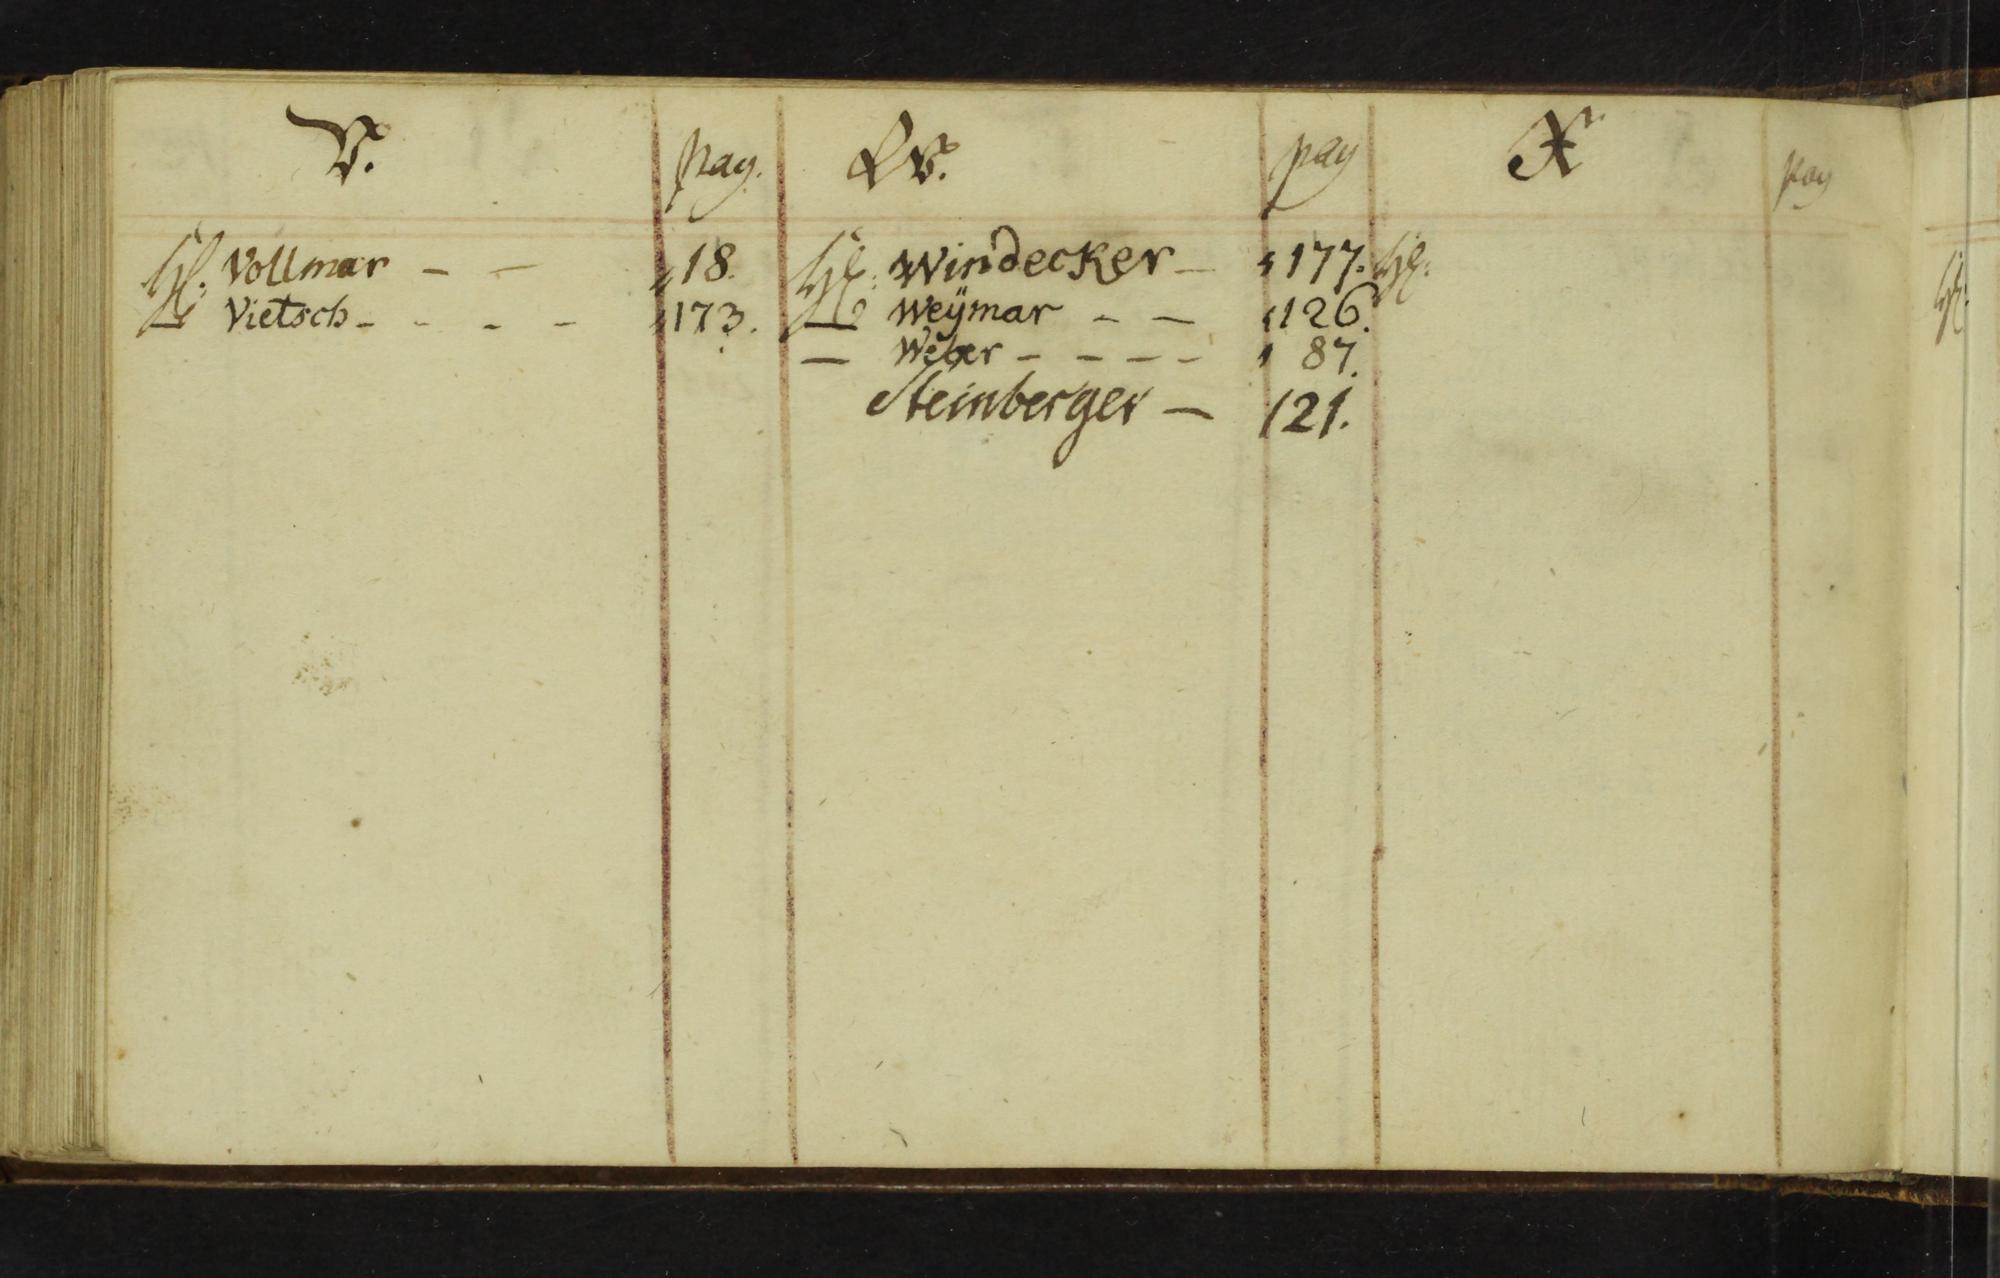 V. pag. W. pag X pag
H. Vollmar – – 18. H. Windecker – 177. H.
— Vietsch – – – – 173. — Weÿmar – – 126.
— Weber – – – – 87.
Steinberger – 121.